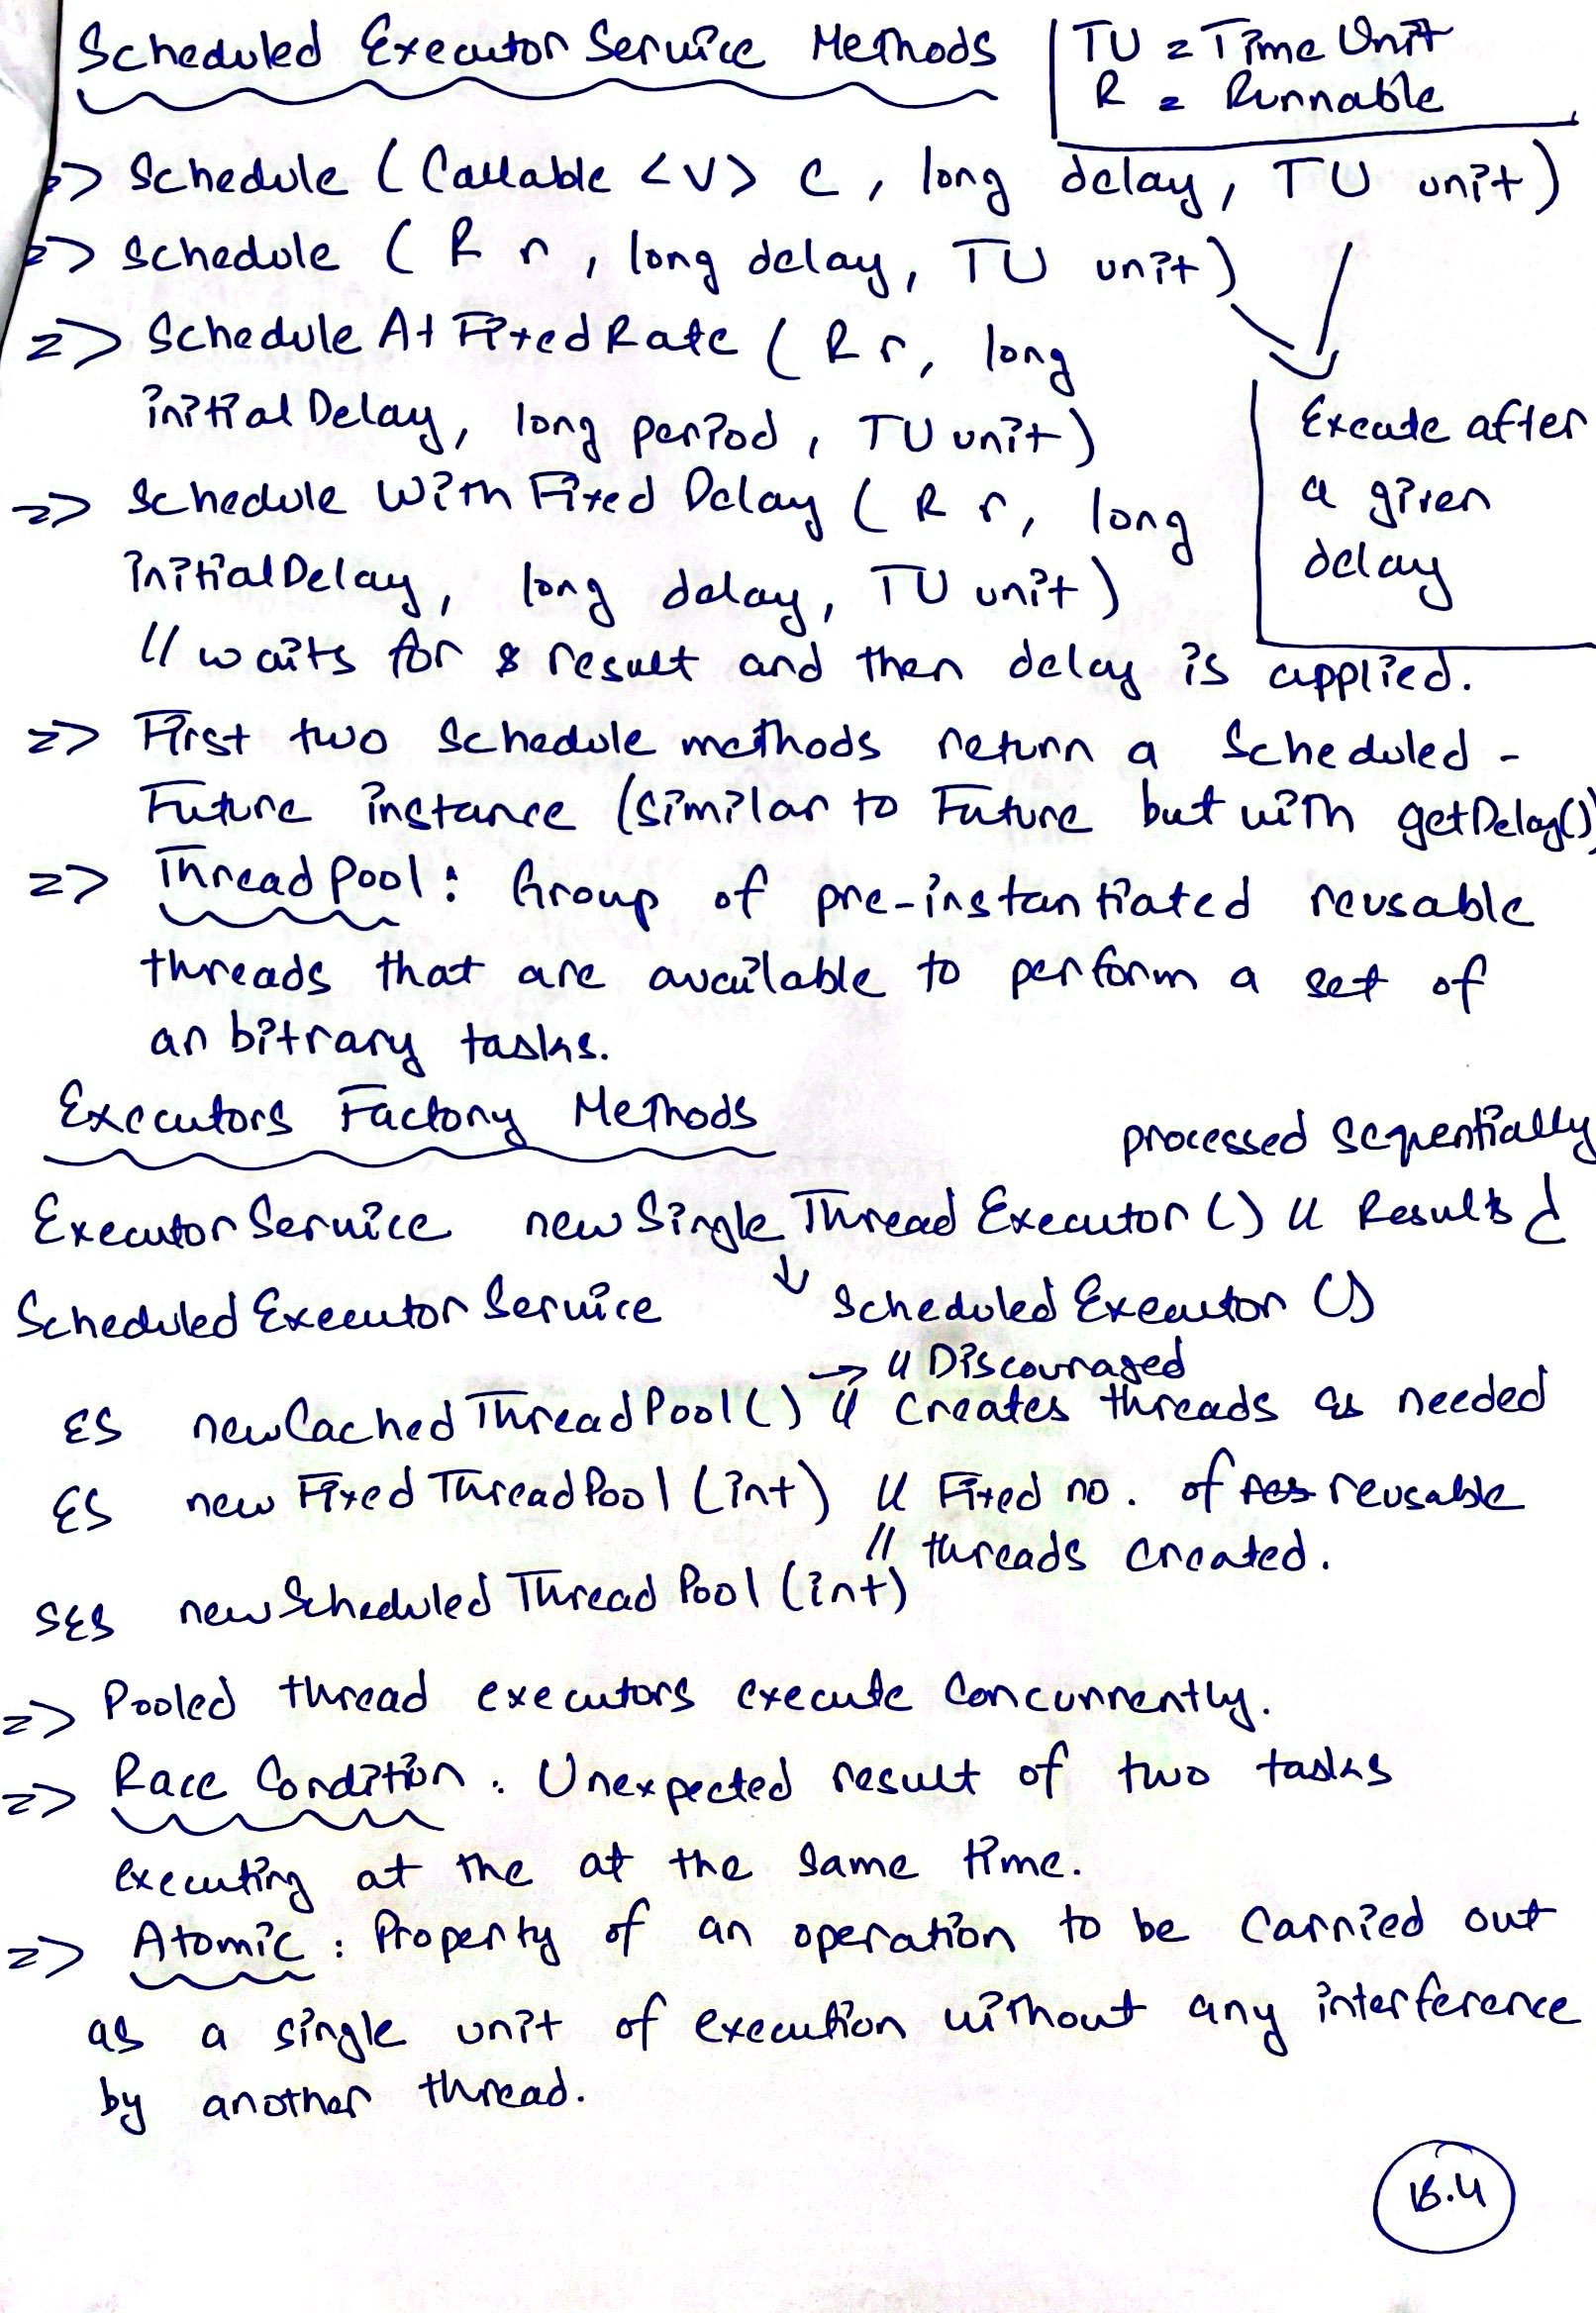 Scheduled Executor Service Methods
TU = Time Unit
R = Runnable
=> Schedule (Callable <V> c, long delay, TU unit)
=> Schedule (R r, long delay, TU unit)
=> Schedule At Fixed Rate (R r, long
initial Delay, long period, TU unit)
Execute after
a given
delay
=> Schedule With Fixed Delay (R r, long
initialDelay, long delay, TU unit)
// waits for result and then delay is applied.
=> First two Schedule methods return a Scheduled -
Future instance (Similar to Future but with getDelay()
=> Thread Pool: Group of pre-instantiated reusable
threads that are available to perform a set of
arbitrary tasks.
Executors Factory Methods
processed sequentially
Executor Service newSingle Thread Executor () // Results
Scheduled Executor Service ↓ Scheduled Executor ()
→ // Discouraged
ES newCached Thread Pool () // Creates threads as needed
ES new Fixed Thread Pool (int) // Fixed no. of reusable
// threads created.
SES newScheduled Thread Pool (int)
=> Pooled thread executors execute Concurrently.
=> Race Condition: Unexpected result of two tasks
executing at the at the same time.
=> Atomic: Property of an operation to be Carried out
as a single unit of execution without any interference
by another thread.